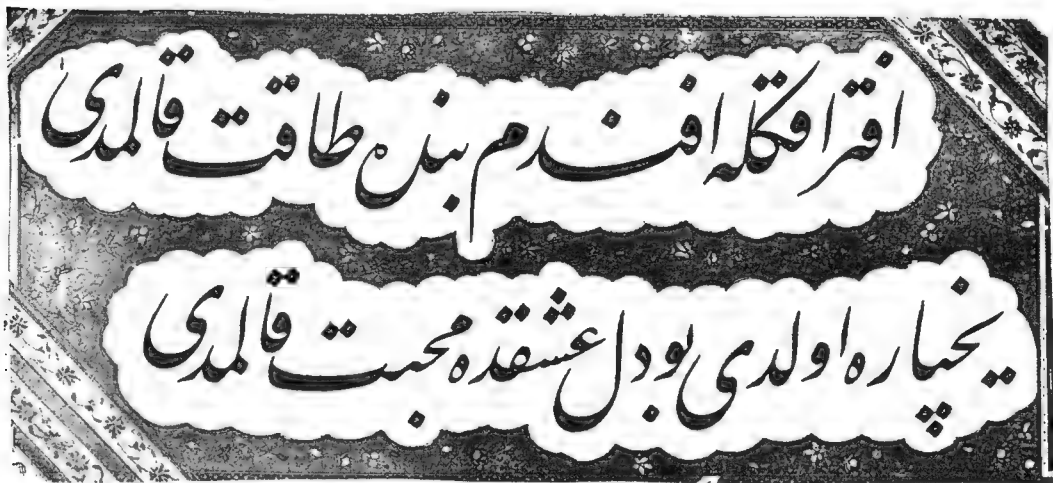 افتراقكله افندم بنده طاقت قالمدی
يكپاره اولدی بو دل عشقده محبت قالمدی